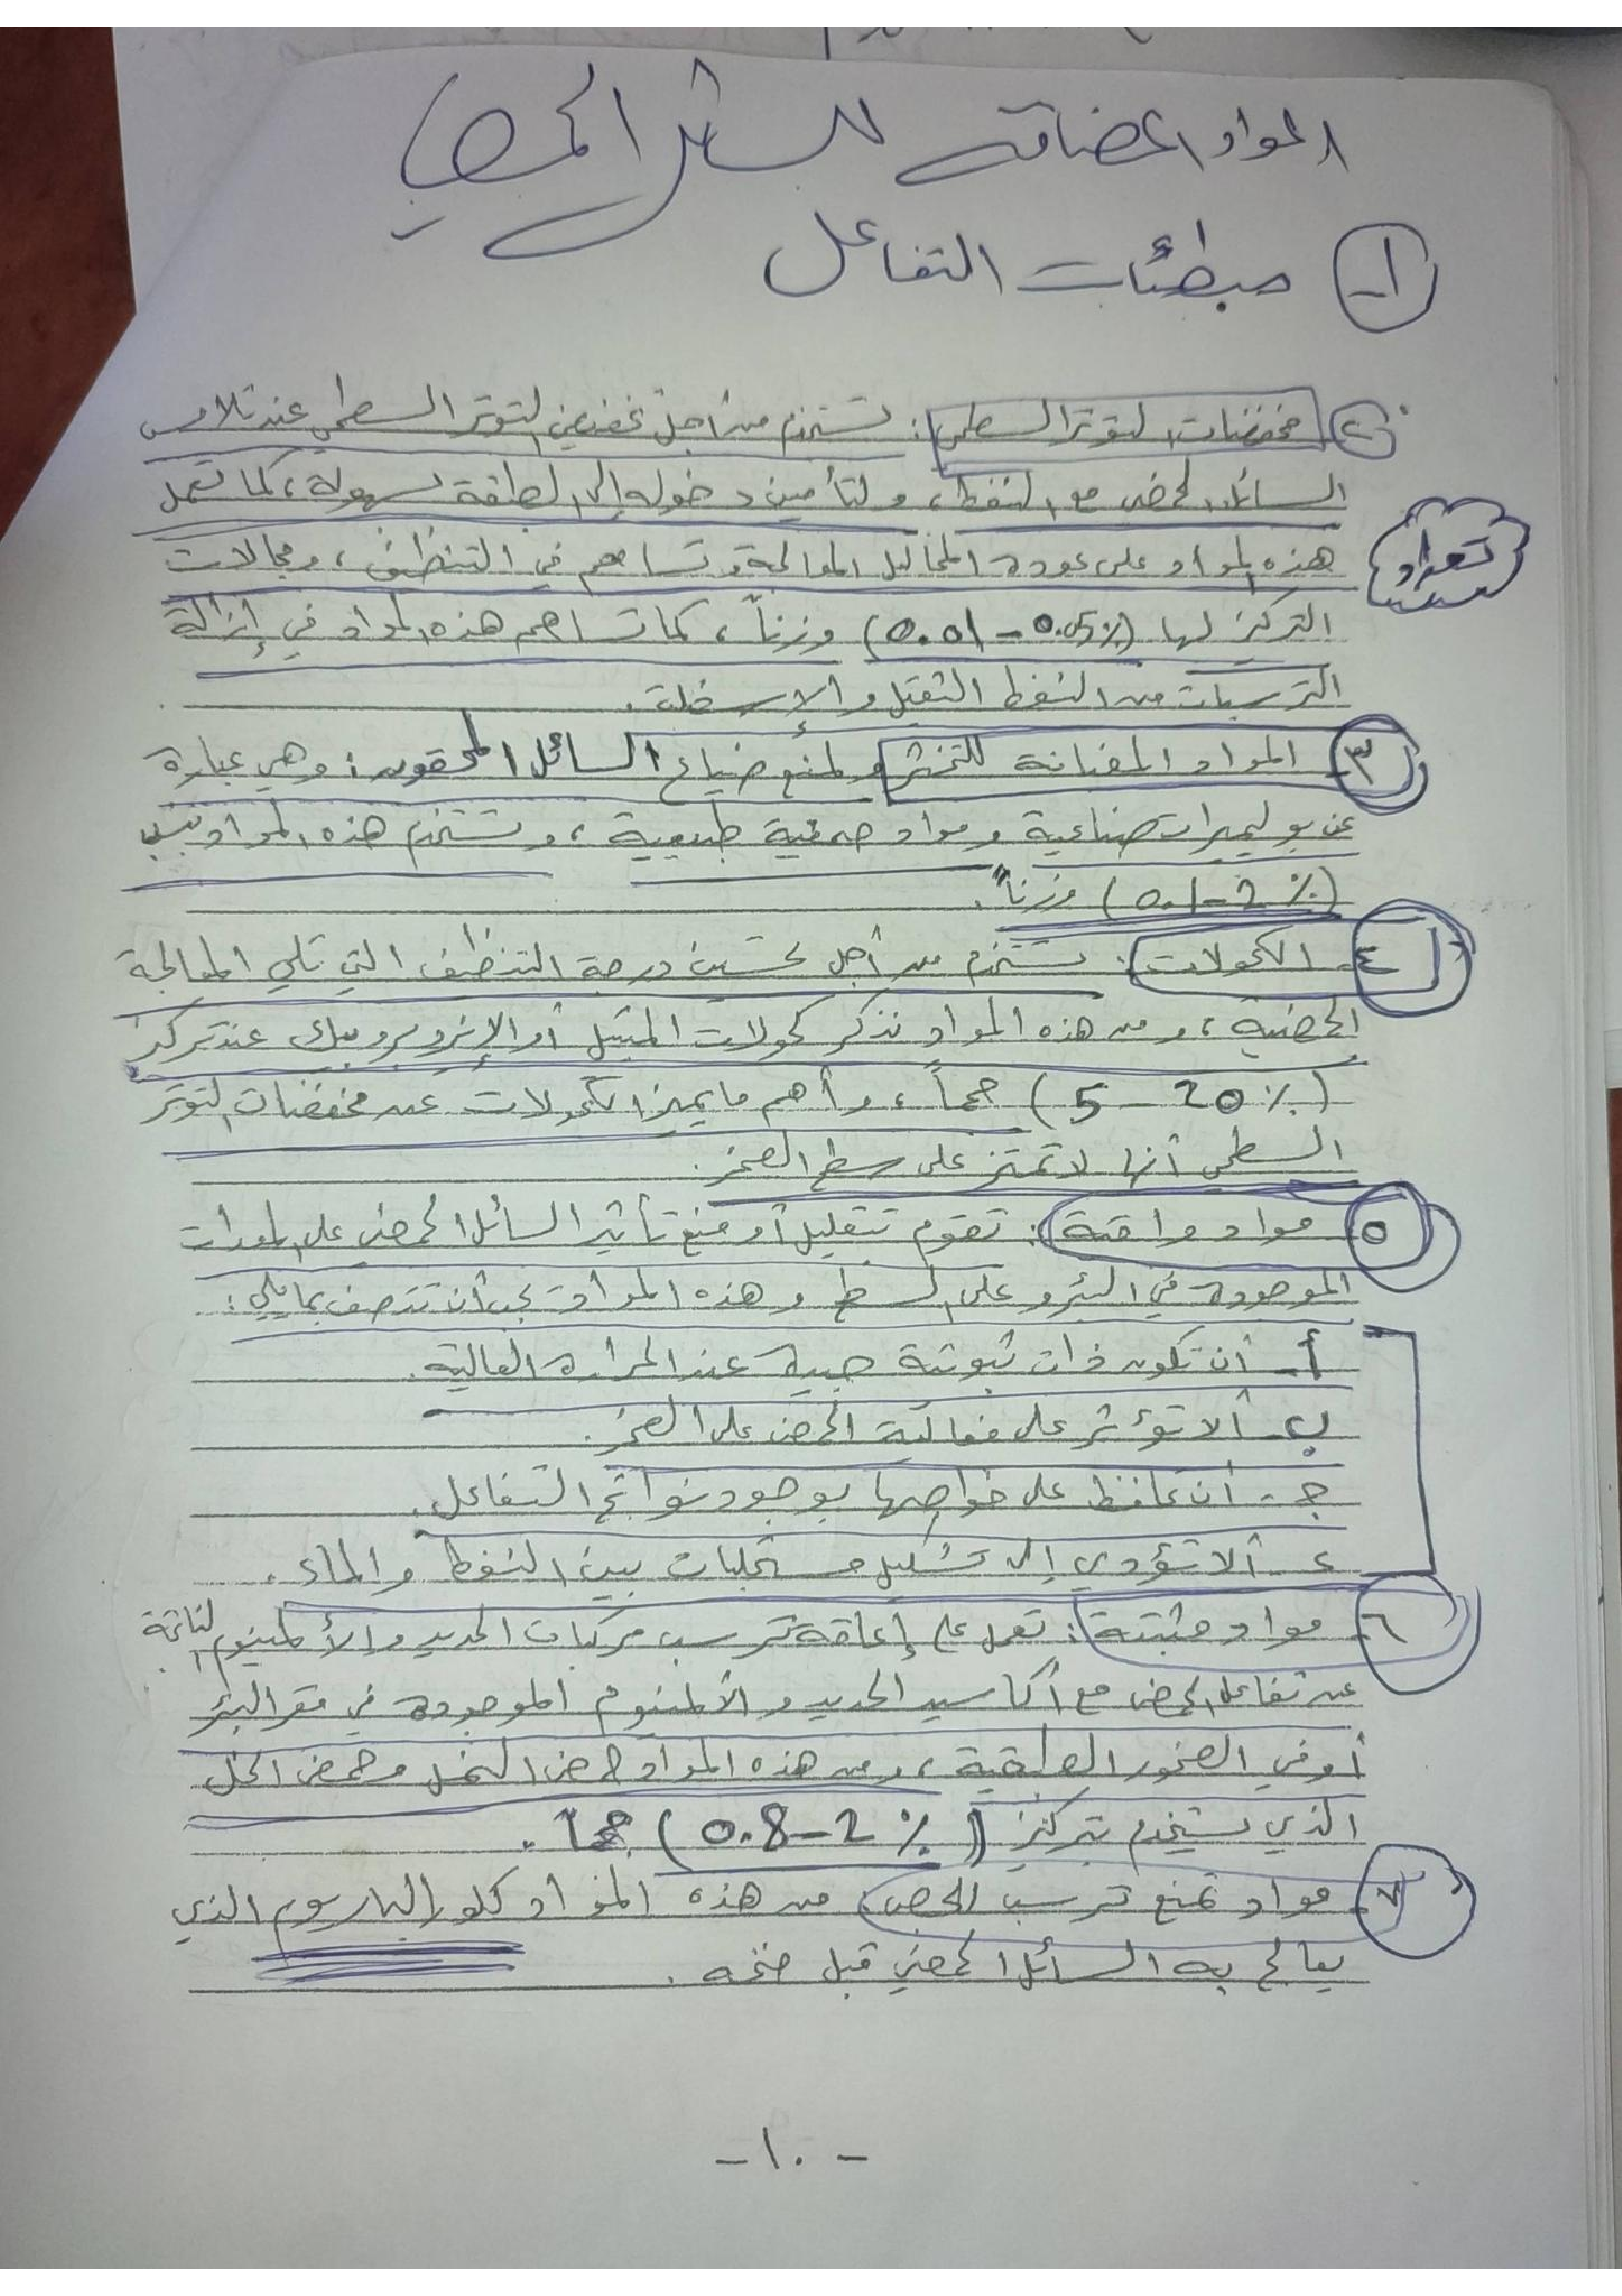 المواد المضافة للسائل الحمضي
١- مبطئات التفاعل
٢- مخفضات التوتر السطحي: تستخدم من أجل تخفيض التوتر السطحي عند تلامس
السائل الحمضي مع النفط، ولتأمين دخوله إلى الطبقة بسهولة، كما تعمل
تعداد
هذه المواد على عودة المحاليل الموالحة وتساهم في التنظيف، ومجالات
التركيز لها (0.01 - 0.05%) وزناً، كما تساهم هذه المواد في إزالة
الترسبات من النفط الثقيل والإسفلت.
٣- المواد المضافة للتخثر ولمنع ضياع السائل المحقون: وهي عبارة
عن بوليميرات صناعية ومواد صمغية طبيعية، وتستخدم هذه المواد بنسب
(0.1-2%) وزناً.
٤- الكحولات: تستخدم من أجل تحسين درجة التنظيف التي تلي المعالجة
الحمضية، ومن هذه المواد نذكر كحولات الميتيل أو الإيزوبروبيل عند تركيز
(5 - 20%) حجماً، وأهم ما يميز الكحولات عن مخفضات التوتر
السطحي أنها لا تمتز على سطح الصخر.
٥- مواد واقية: تقوم بتقليل أو منع تأثير السائل الحمضي على المعدات
الموجودة في البئر وعلى السطح وهذه المواد يجب أن تتصف بمايلي:
أ- أن تكون ذات ثبوتية جيدة عند الحرارة العالية.
ب- ألا تؤثر على فعالية الحمض على الصخر.
ج- أن تحافظ على خواصها بوجود نواتج التفاعل.
د- ألا تؤدي إلى تشكيل مستحلبات بين النفط والماء.
٦- مواد مثبتة: تعمل على إعاقة ترسب مركبات الحديد والألمنيوم الناتجة
عن تفاعل الحمض مع أكاسيد الحديد والألمنيوم الموجودة في مقر البئر
أو في الصخور الطبقية، ومن هذه المواد حمض النمل وحمض الخل
الذي يستخدم بتركيز (0.8-2%) حجماً.
٧- مواد تمنع ترسب الجص: من هذه المواد كلور الباريوم الذي
يعالج به السائل الحمضي قبل ضخه.
-١٠-